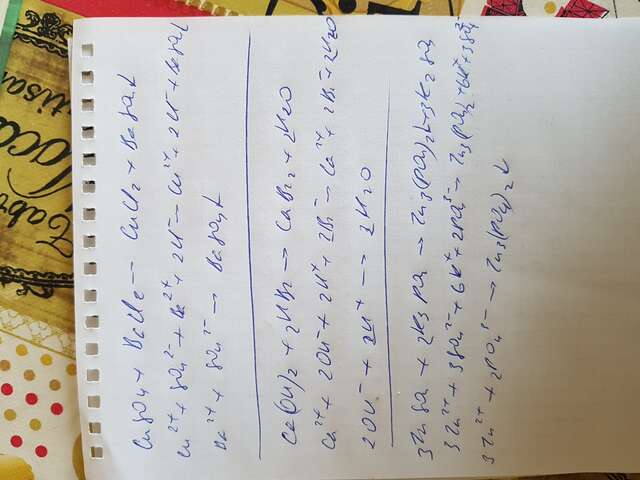 Fabr
Maca
artisa
CuSO4 + BaCl2 — CuCl2 + BaSO4↓
Cu²⁺ + SO4²⁻ + Ba²⁺ + 2Cl⁻ — Cu²⁺ + 2Cl⁻ + BaSO4↓
Ba²⁺ + SO4²⁻ → BaSO4↓
Ca(OH)2 + 2HBr → CaBr2 + 2H2O
Ca²⁺ + 2OH⁻ + 2H⁺ + 2Br⁻ — Ca²⁺ + 2Br⁻ + 2H2O
2OH⁻ + 2H⁺ → 2H2O
3ZnSO4 + 2K3PO4 → Zn3(PO4)2↓ + 3K2SO4
3Zn²⁺ + 3SO4²⁻ + 6K⁺ + 2PO4³⁻ → Zn3(PO4)2 + 6K⁺ + 3SO4²⁻
3Zn²⁺ + 2PO4³⁻ → Zn3(PO4)2↓